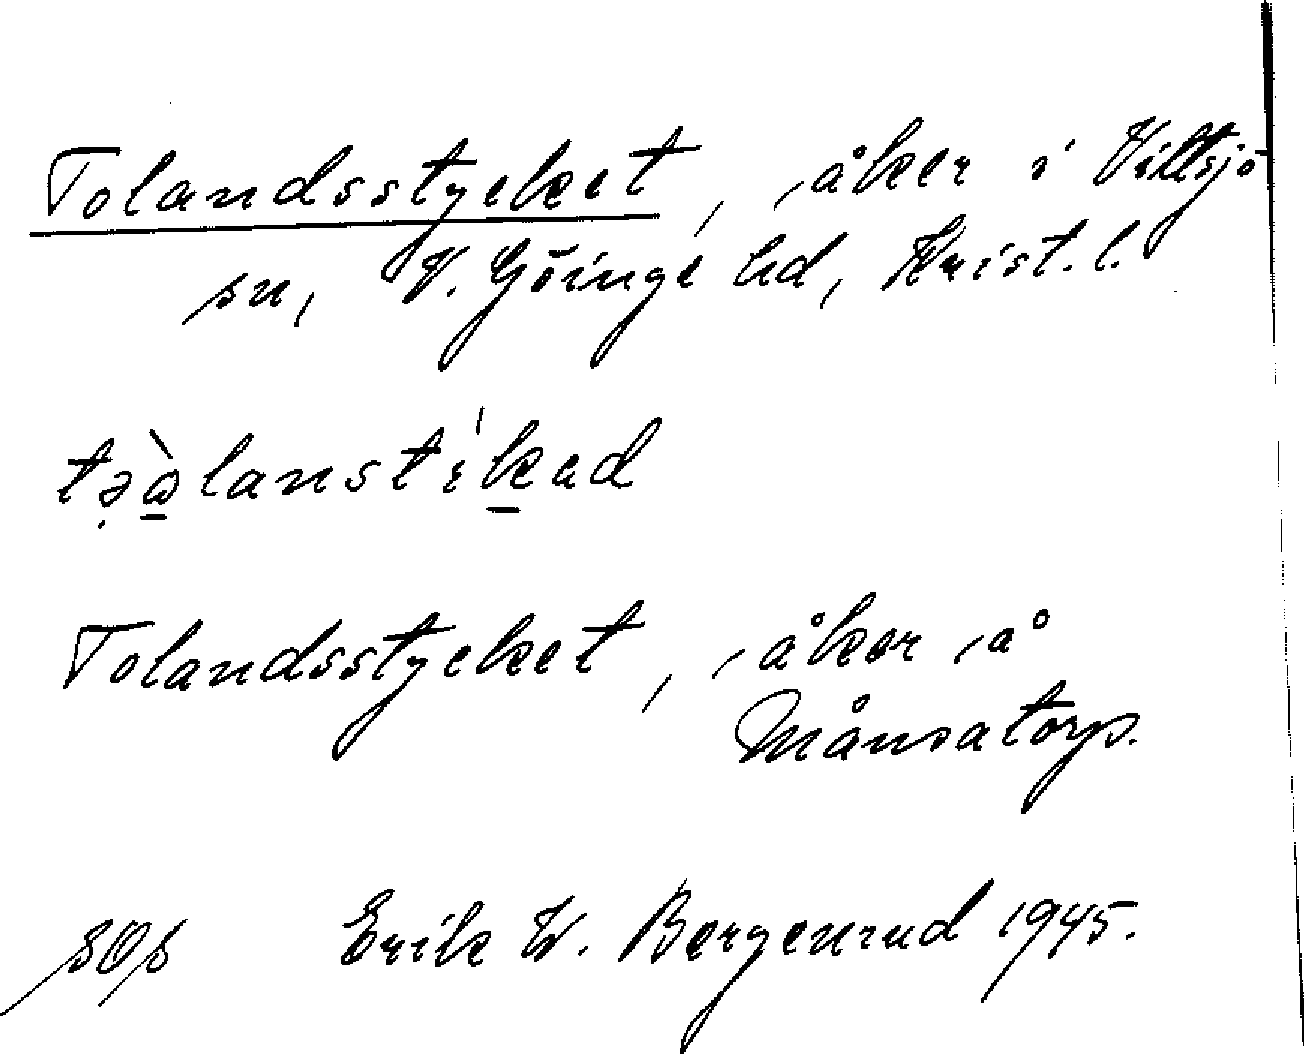 Tolandsstycket, åker i Vittsjö
sn, V. Göinge hd, Krist. l.
Tolandsstycket, åker å
Månsatorp.
Erik W. Bergenrud 1945.